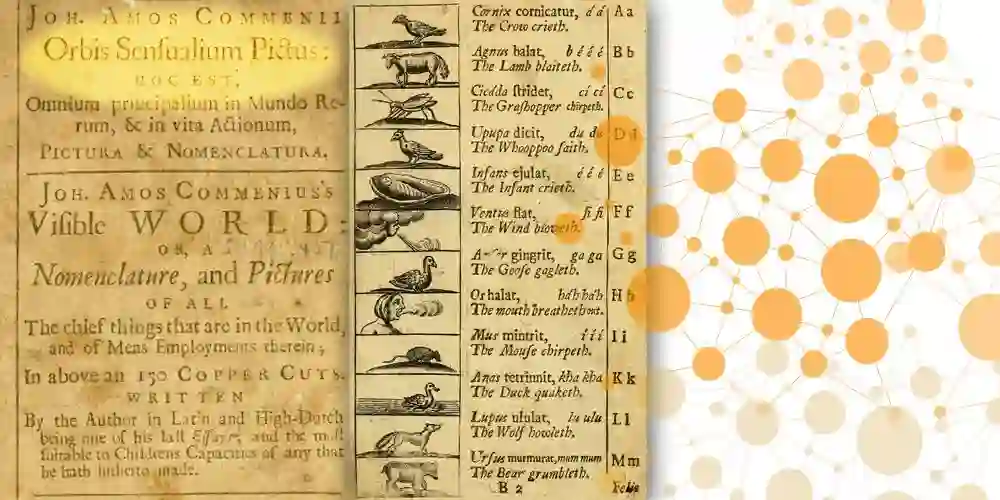 JOH. AMOS COMMENII
Orbis Senſualium Pictus:
HOC EST,
Omnium principalium in Mundo Re-
rum, & in vita Actionum,
PICTURA & NOMENCLATURA.
JOH. AMOS COMMENIUS's
Viſible WORLD:
OR, A
Nomenclature, and Pictures
OF ALL
The chief things that are in the World,
and of Mens Employments therein;
In above an 150 COPPER CUTS.
WRITTEN
By the Author in Latin and High-Dutch
being one of his laſt Eſſays, and the moſt
ſuitable to Childrens Capacities of any that
he hath hitherto made.
Cornix cornicatur, á á A a
The Crow crieth.
Agnus balat, b é é é B b
The Lamb blaiteth.
Cicàda ſtridet, ci ci C c
The Graſhopper chirpeth.
Upupa dicit, du du D d
The Whooppoo ſaith.
Infans ejulat, é é é E e
The Infant crieth.
Ventus flat, fi fi F f
The Wind bloweth.
gingrit, ga ga G g
The Gooſe gagleth.
Os halat, há'h há'h H h
The mouth breatheth out.
Mus mintrit, í í í I i
The Mouſe chirpeth.
Anas tetrinnit, kha kha K k
The Duck quaketh.
Lupus ululat, lu ulu L l
The Wolf howleth.
Urſus murmurat, mum mum M m
The Bear grumbleth.
B 2 Felis